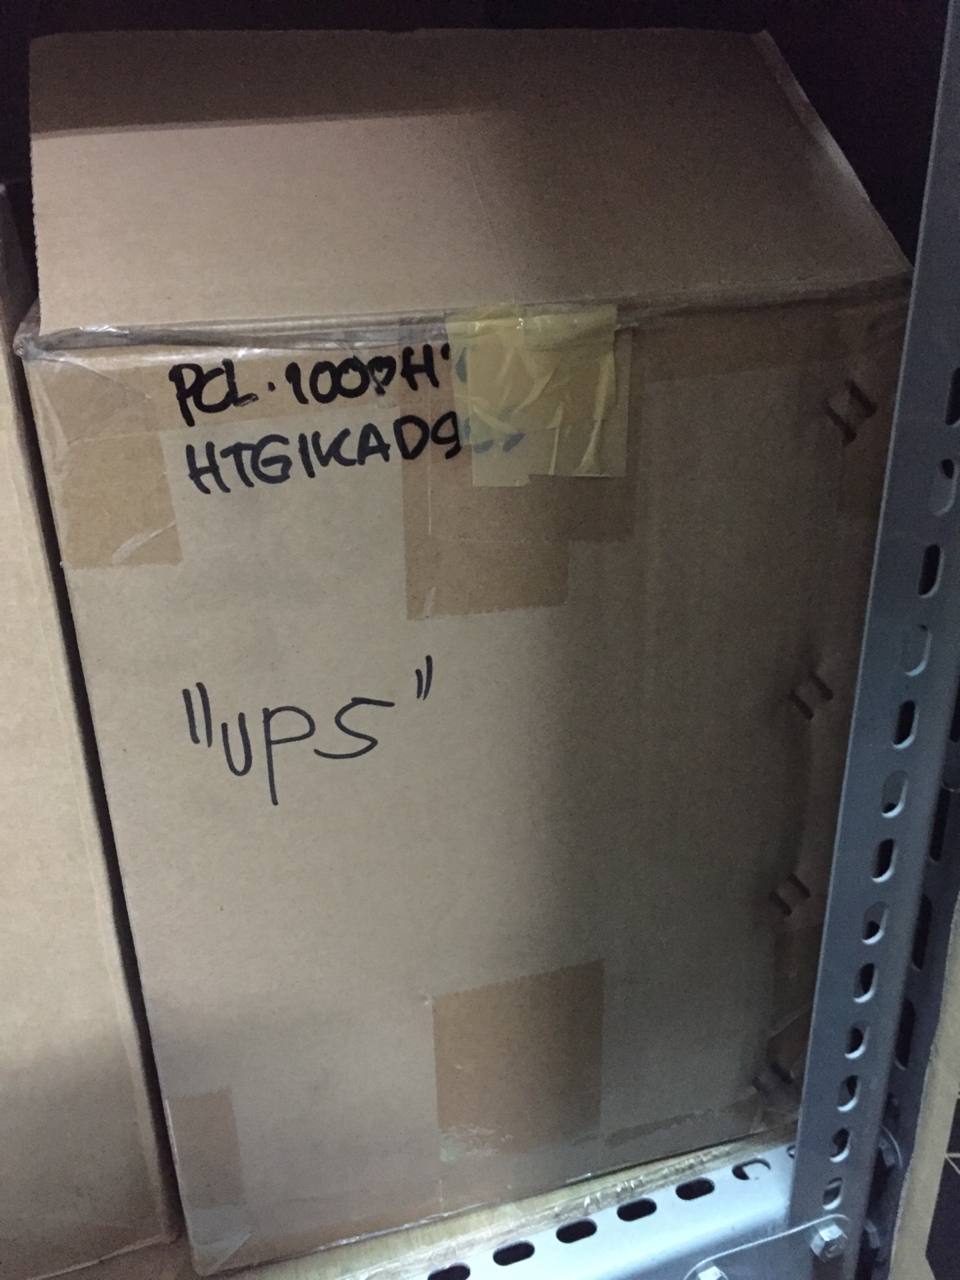 PCL-1000H
HTGIKAD9
"UPS"